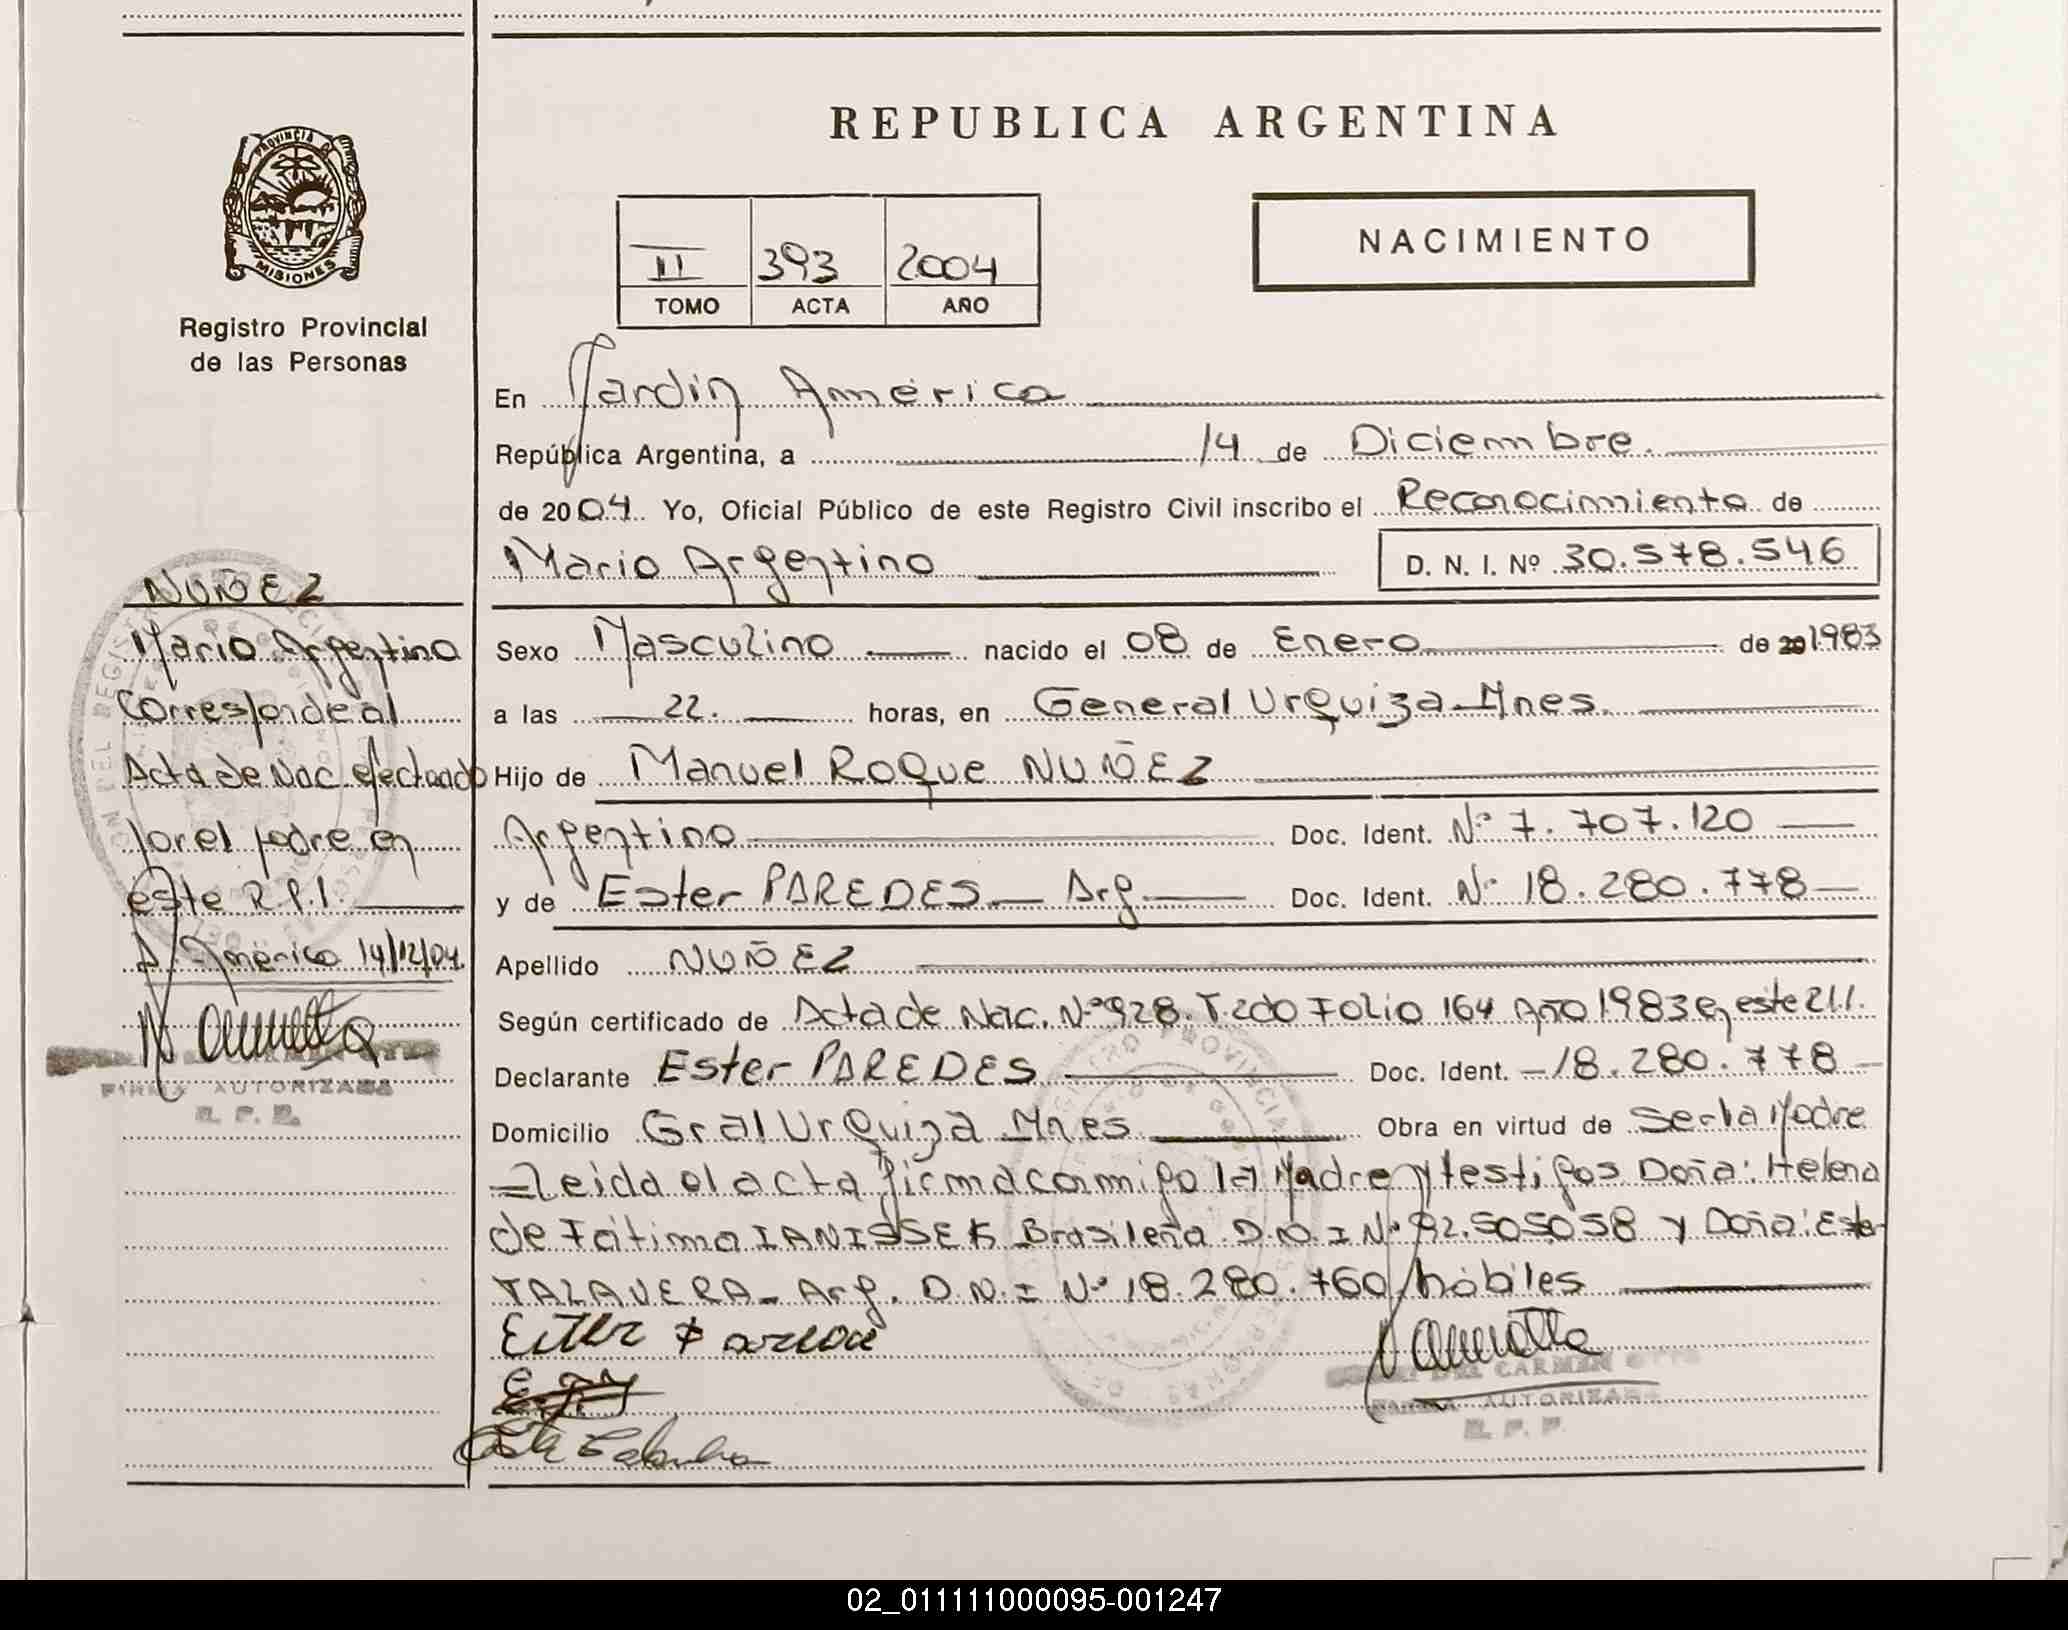 REPUBLICA ARGENTINA
PROVINCIA DE
MISIONES
Registro Provincial
de las Personas
II 393 2004
TOMO ACTA AÑO
NACIMIENTO
En Jardín América
República Argentina, a 14 de Diciembre.
de 2004. Yo, Oficial Público de este Registro Civil inscribo el Reconocimiento de
Mario Argentino D. N. I. Nº 30.578.546
Sexo Masculino nacido el 08 de Enero de 20 1983
a las 22. horas, en General Urquiza-Mnes.
Hijo de Manuel Roque NUÑEZ
Argentino Doc. Ident. Nº 7.707.120
y de Ester PAREDES - Arg Doc. Ident. Nº 18.280.778
Apellido NUÑEZ
Según certificado de Acta de Nac. Nº 928. T. 2do Folio 164 Año 1983 en este
Declarante Ester PAREDES Doc. Ident. 18.280.778
Domicilio Gral Urquiza Mnes Obra en virtud de ser la Madre
Leida el acta firma conmigo la Madre y testigos Doña: Helena
de Fátima IANISSEK Brasileña D.N.I Nº 92.505058 y Doña: Ester
TALAVERA - Arg. D.N.I Nº 18.280.760 hábiles
Ester Paredes
DEL CARMEN
FIRMA AUTORIZADA
R. P. P.
NUÑEZ
Mario Argentino
Corresponde al
Acta de Nac. efectuado
por el padre en
este R.P.P.
J. América 14/12/04.
FIRMA AUTORIZADA
R. P. P.
02_011111000095-001247